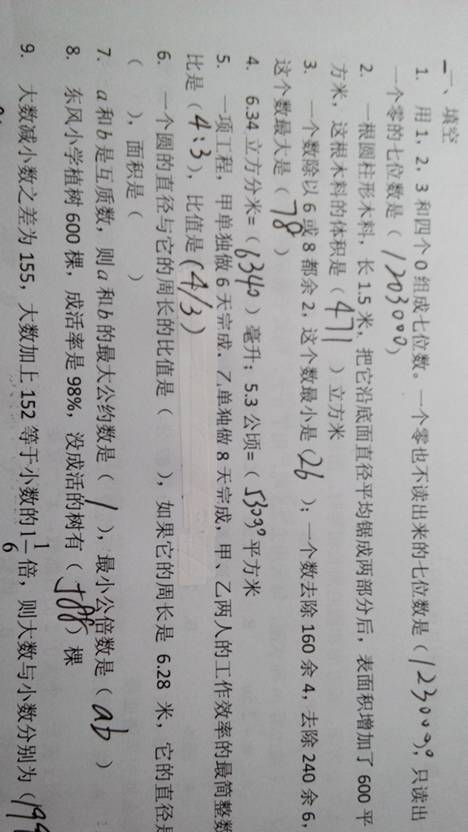 一、填空
1. 用 1，2，3 和四个 0 组成七位数。一个零也不读出来的七位数是（1230000），只读出
一个零的七位数是（1203000）
2. 一根圆柱形木料，长 1.5 米，把它沿底面直径平均锯成两部分后，表面积增加了 600 平
方米，这根木料的体积是（471）立方米
3. 一个数除以 6 或 8 都余 2，这个数最小是（26）；一个数去除 160 余 4，去除 240 余 6，
这个数最大是（78）
4. 6.34 立方分米=（6340）毫升；5.3 公顷=（53000）平方米
5. 一项工程，甲单独做 6 天完成，乙单独做 8 天完成，甲、乙两人的工作效率的最简整数
比是（4:3），比值是（4/3）
6. 一个圆的直径与它的周长的比值是（ ），如果它的周长是 6.28 米，它的直径是
（ ），面积是（ ）
7. a 和 b 是互质数，则 a 和 b 的最大公约数是（1），最小公倍数是（ab）
8. 东风小学植树 600 棵，成活率是 98%，没成活的树有（588）棵
9. 大数减小数之差为 155，大数加上 152 等于小数的 1 1/6 倍，则大数与小数分别为（